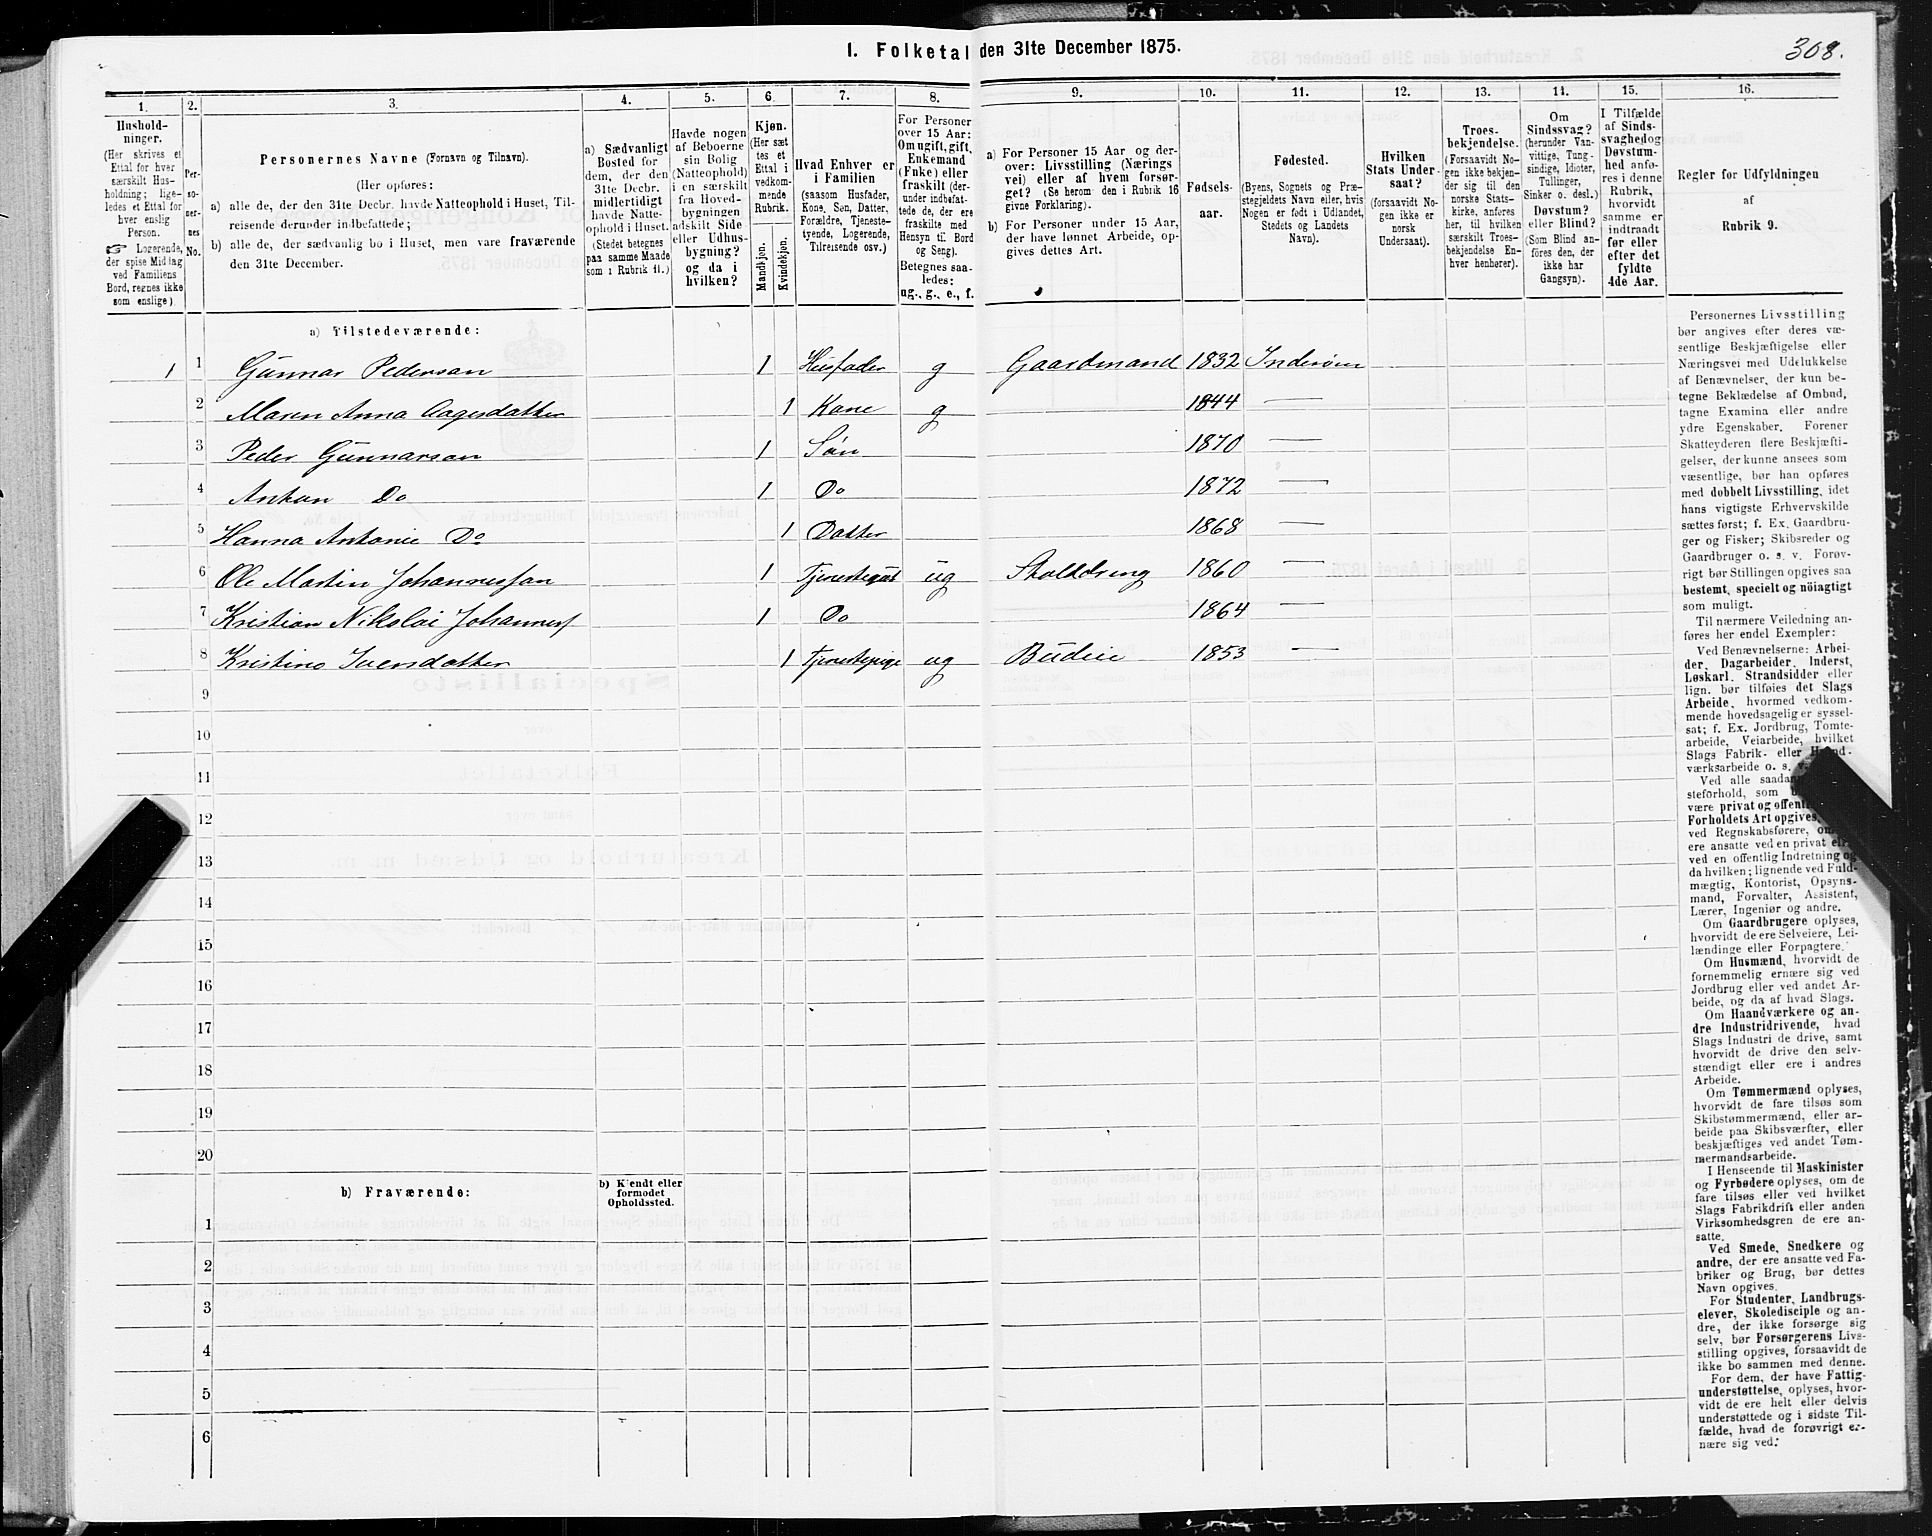 1. Folketal den 31te December 1875.
308.
1. 2. 3. 4. 5. 6. 7. 8. 9. 10. 11. 12. 13. 14. 15. 16.
Hushold-
ninger.
(Her skrives et
Ettal for hver
særskilt Hus-
holdning; lige-
ledes et Ettal for
hver enslig
Person.
☞ Logerende,
der spise Middag
ved Familiens
Bord, regnes ikke
som enslige)
Per-
so-
ner-
nes
No.
Personernes Navne (Fornavn og Tilnavn).
(Her opføres:
a) alle de, der den 31te Decbr. havde Natteophold i Huset, Til-
reisende derunder indbefattede;
b) alle de, der sædvanlig bo i Huset, men vare fraværende
den 31te December.
a) Sædvanligt
Bosted for
dem, der den
31te Decbr.
midlertidigt
havde Natte-
ophold i Huset.
(Stedet betegnes
paa samme Maade
som i Rubrik 11.)
Havde nogen
af Beboerne
sin Bolig
(Natteophold)
i en særskilt
fra Hoved-
bygningen
adskilt Side-
eller Udhus-
bygning?
og da i
hvilken?
Kjøn.
(Her sæt-
tes et
Ettal i
vedkom-
mende
Rubrik.
Mandkjøn.
Kvindekjøn.
Hvad Enhver er
i Familien
(saasom Husfader,
Kone, Søn, Datter,
Forældre, Tjeneste-
tyende, Logerende,
Tilreisende osv.)
For Personer
over 15 Aar:
Om ugift, gift,
Enkemand
(Enke) eller
fraskilt (der-
under indbefat-
tede de, der ere
fraskilte med
Hensyn til Bord
og Seng).
Betegnes saa-
ledes:
ug., g., e., f.
a) For Personer 15 Aar og der-
over: Livsstilling (Nærings
vei) eller af hvem forsør-
get? (Se herom den i Rubrik 16
givne Forklaring).
b) For Personer under 15 Aar,
der have lønnet Arbeide, op-
gives dettes Art.
Fødsels-
aar.
Fødested.
(Byens, Sognets og Præ-
stegjeldets Navn eller, hvis
Nogen er født i Udlandet,
Stedets og Landets
Navn).
Hvilken
Stats Under-
saat?
(forsaavidt No-
gen ikke er
norsk
Undersaat).
Troes-
bekjendelse.
(Forsaavidt No-
gen ikke bekjen-
der sig til den
norske Stats-
kirke, anføres
her, til hvilken
særskilt Troes-
bekjendelse En-
hver henhører).
Om
Sindssvag?
(herunder Van-
vittige, Tung-
sindige, Idioter,
Tullinger,
Sinker o. desl.)
Døvstum?
eller Blind?
(Som Blind an-
føres den, der
ikke har
Gangsyn).
I Tilfælde
af Sinds-
svaghed og
Døvstum-
hed anfø-
res i denne
Rubrik,
hvorvidt
samme er
indtraadt
før eller
efter det
fyldte
4de Aar.
Regler for Udfyldningen
af
Rubrik 9.
a) Tilstedeværende:
1 1 Gunnar Pedersen 1 Husfader g Gaardmand 1832 Inderøen
2 Maren Anna Aagesdatter 1 Kone g 1844 —
3 Peder Gunnarsen 1 Søn 1870 —
4 Anton Do 1 Do 1872 —
5 Hanna Antonie Do 1 Datter 1868 —
6 Ole Martin Johannessen 1 Tjenestegut ug Stalddreng 1860 —
7 Kristian Nikolai Johanness 1 Do 1864 —
8 Kristine Iversdatter 1 Tjenestepige ug Budeie 1853 —
9
10
11
12
13
14
15
16
17
18
19
20
b) Fraværende:
b) Kjendt eller
formodet
Opholdssted.
1
2
3
4
5
6
Personernes Livsstilling
bør angives efter deres væ-
sentlige Beskjæftigelse eller
Næringsvei med Udelukkelse
af Benævnelser, der kun be-
tegne Beklædelse af Ombud,
tagne Examina eller andre
ydre Egenskaber. Forener
Skatteyderen flere Beskjæfti-
gelser, der kunne ansees som
væsentlige, bør han opføres
med dobbelt Livsstilling, idet
hans vigtigste Erhvervskilde
sættes først; f. Ex. Gaardbru-
ger og Fisker; Skibsreder og
Gaardbruger o. s. v. Forøv-
rigt bør Stillingen opgives saa
bestemt, specielt og nöiagtigt
som muligt.
Til nærmere Veiledning an-
føres her endel Exempler:
Ved Benævnelserne: Arbei-
der, Dagarbeider, Inderst,
Løskarl, Strandsidder eller
lign. bør tilføies det Slags
Arbeide, hvormed vedkom-
mende hovedsagelig er syssel-
sat; f. Ex. Jordbrug, Tomte-
arbeide, Veiarbeide, hvilket
Slags Fabrik- eller Haand-
værksarbeide o. s. v.
Ved alle saadan
steforhold, som
være privat og offent
Forholdets Art opgives,
ved Regnskabsførere, om
ere ansatte ved en privat el
ved en offentlig Indretning og
da hvilken; lignende ved Fuld-
mægtig, Kontorist, Opsyns-
mand, Forvalter, Assistent,
Lærer, Ingeniør og andre.
Om Gaardbrugere oplyses,
hvorvidt de ere Selveiere, Lei-
lændinge eller Forpagtere.
Om Husmænd, hvorvidt de
fornemmelig ernære sig ved
Jordbrug eller ved andet Ar-
beide, og da af hvad Slags.
Om Haandværkere og an-
dre Industridrivende, hvad
Slags Industri de drive, samt
hvorvidt de drive den selv-
stændigt eller ere i andres
Arbeide.
Om Tømmermænd oplyses,
hvorvidt de fare tilsøs som
Skibstømmermænd, eller ar-
beide paa Skibsværfter, eller
beskjæftiges ved andet Tøm-
mermandsarbeide.
I Henseende til Maskinister
og Fyrbødere oplyses, om de
fare tilsøs eller ved hvilket
Slags Fabrikdrift eller anden
Virksomhedsgren de ere an-
satte.
Ved Smede, Snedkere og
andre, der ere ansatte ved Fa-
briker og Brug, bør dettes
Navn opgives.
For Studenter, Landbrugs-
elever, Skoledisciple og an-
dre, der ikke forsørge sig
selv, bør Forsørgerens Livs-
stilling opgives, forsaavidt de
ikke bo sammen med denne.
For dem, der have Fattig-
understøttelse, oplyses, hvor-
vidt de ere helt eller delvis
understøttede og i sidste Til-
fælde, hvad de forøvrigt er-
nære sig ved.